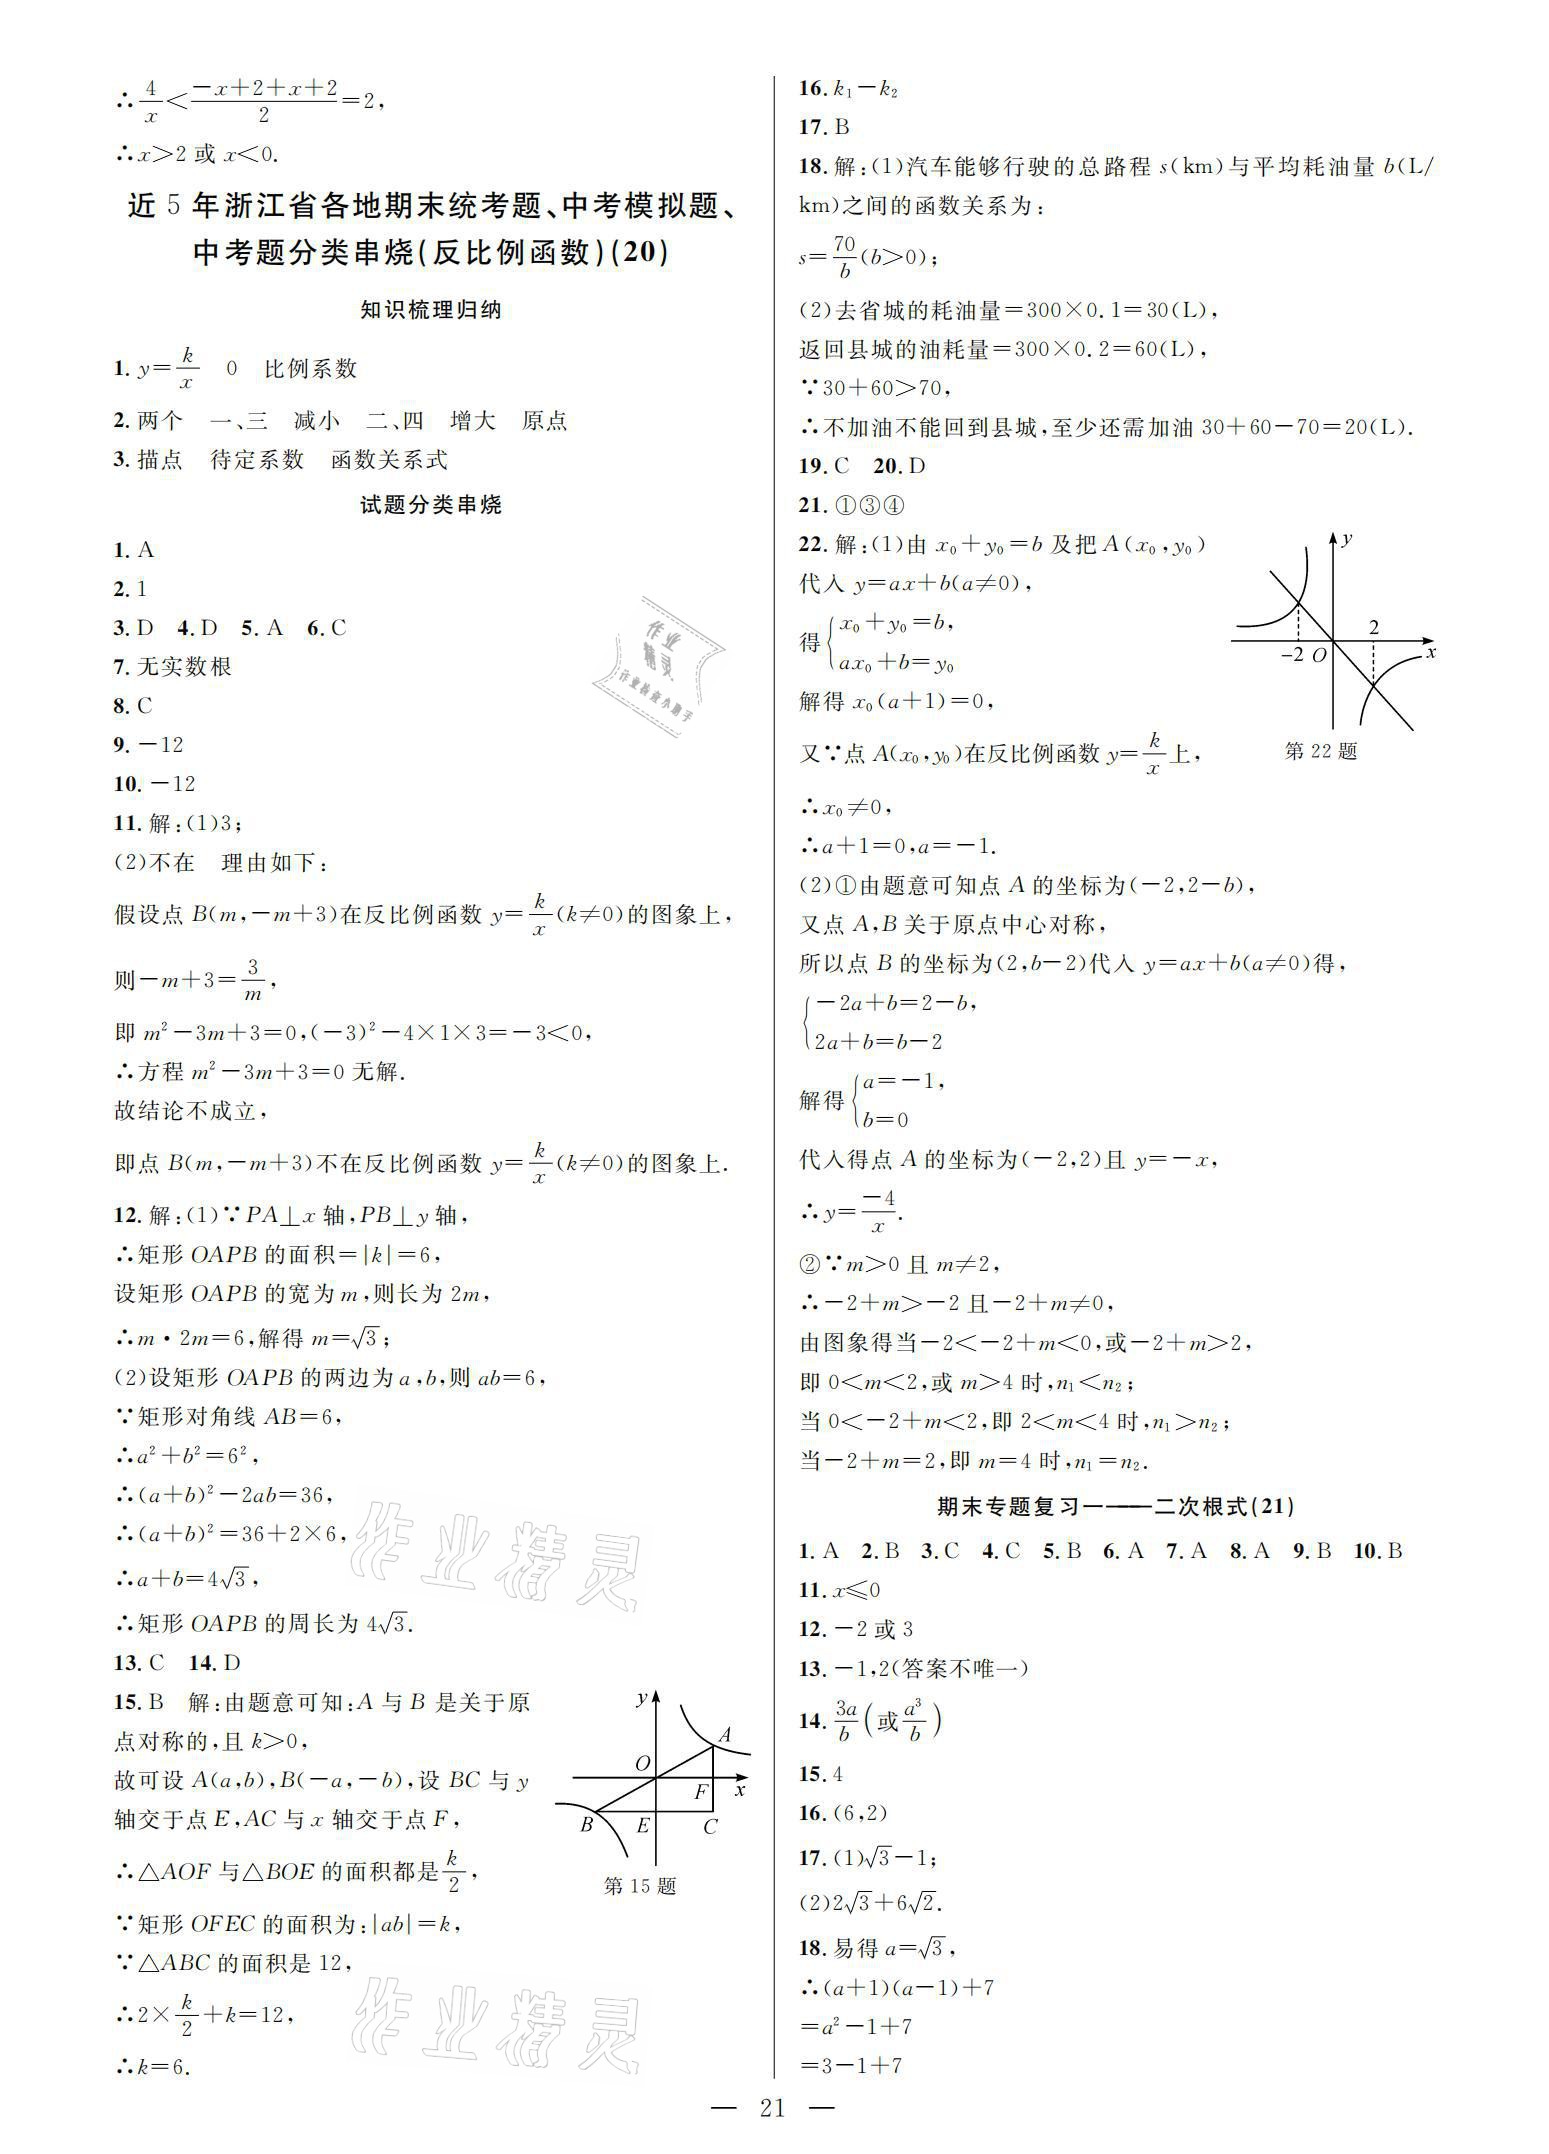 ∴4/x<(-x+2+x+2)/2=2,
∴x>2 或 x<0.
近 5 年浙江省各地期末统考题、中考模拟题、
中考题分类串烧(反比例函数)(20)
知识梳理归纳
1. y=k/x　0　比例系数
2. 两个　一、三　减小　二、四　增大　原点
3. 描点　待定系数　函数关系式
试题分类串烧
1. A
2. 1
3. D　4. D　5. A　6. C
7. 无实数根
8. C
9. －12
10. －12
11. 解:(1)3;
(2)不在　理由如下:
假设点 B(m,－m＋3)在反比例函数 y=k/x(k≠0)的图象上,
则－m＋3=3/m,
即 m²－3m＋3=0,(－3)²－4×1×3=－3<0,
∴方程 m²－3m＋3=0 无解.
故结论不成立,
即点 B(m,－m＋3)不在反比例函数 y=k/x(k≠0)的图象上.
12. 解:(1)∵PA⊥x 轴,PB⊥y 轴,
∴矩形 OAPB 的面积=|k|=6,
设矩形 OAPB 的宽为 m,则长为 2m,
∴m·2m=6,解得 m=√3;
(2)设矩形 OAPB 的两边为 a,b,则 ab=6,
∵矩形对角线 AB=6,
∴a²＋b²=6²,
∴(a＋b)²－2ab=36,
∴(a＋b)²=36＋2×6,
∴a＋b=4√3,
∴矩形 OAPB 的周长为 4√3.
13. C　14. D
15. B　解:由题意可知:A 与 B 是关于原
点对称的,且 k>0,
故可设 A(a,b),B(－a,－b),设 BC 与 y
轴交于点 E,AC 与 x 轴交于点 F,
∴△AOF 与△BOE 的面积都是k/2,
∵矩形 OFEC 的面积为:|ab|=k,
∵△ABC 的面积是 12,
∴2×k/2＋k=12,
∴k=6.
y
A
O
F
x
B
E
C
第 15 题
16. k₁－k₂
17. B
18. 解:(1)汽车能够行驶的总路程 s(km)与平均耗油量 b(L/
km)之间的函数关系为:
s=70/b(b>0);
(2)去省城的耗油量=300×0.1=30(L),
返回县城的油耗量=300×0.2=60(L),
∵30＋60>70,
∴不加油不能回到县城,至少还需加油 30＋60－70=20(L).
19. C　20. D
21. ①③④
22. 解:(1)由 x₀＋y₀=b 及把 A(x₀,y₀)
代入 y=ax＋b(a≠0),
得{x₀＋y₀=b,
ax₀＋b=y₀
解得 x₀(a＋1)=0,
又∵点 A(x₀,y₀)在反比例函数 y=k/x上,
∴x₀≠0,
∴a＋1=0,a=－1.
y
2
-2
O
x
第 22 题
(2)①由题意可知点 A 的坐标为(－2,2－b),
又点 A,B 关于原点中心对称,
所以点 B 的坐标为(2,b－2)代入 y=ax＋b(a≠0)得,
{－2a＋b=2－b,
2a＋b=b－2
解得{a=－1,
b=0
代入得点 A 的坐标为(－2,2)且 y=－x,
∴y=－4/x.
②∵m>0 且 m≠2,
∴－2＋m>－2 且－2＋m≠0,
由图象得当－2<－2＋m<0,或－2＋m>2,
即 0<m<2,或 m>4 时,n₁<n₂;
当 0<－2＋m<2,即 2<m<4 时,n₁>n₂;
当－2＋m=2,即 m=4 时,n₁=n₂.
期末专题复习一——二次根式(21)
1. A　2. B　3. C　4. C　5. B　6. A　7. A　8. A　9. B　10. B
11. x≤0
12. －2 或 3
13. －1,2(答案不唯一)
14. 3a/b(或a³/b)
15. 4
16. (6,2)
17. (1)√3－1;
(2)2√3＋6√2.
18. 易得 a=√3,
∴(a＋1)(a－1)＋7
=a²－1＋7
=3－1＋7
作业精灵
作业检查小助手
作业精灵
作业精灵
— 21 —